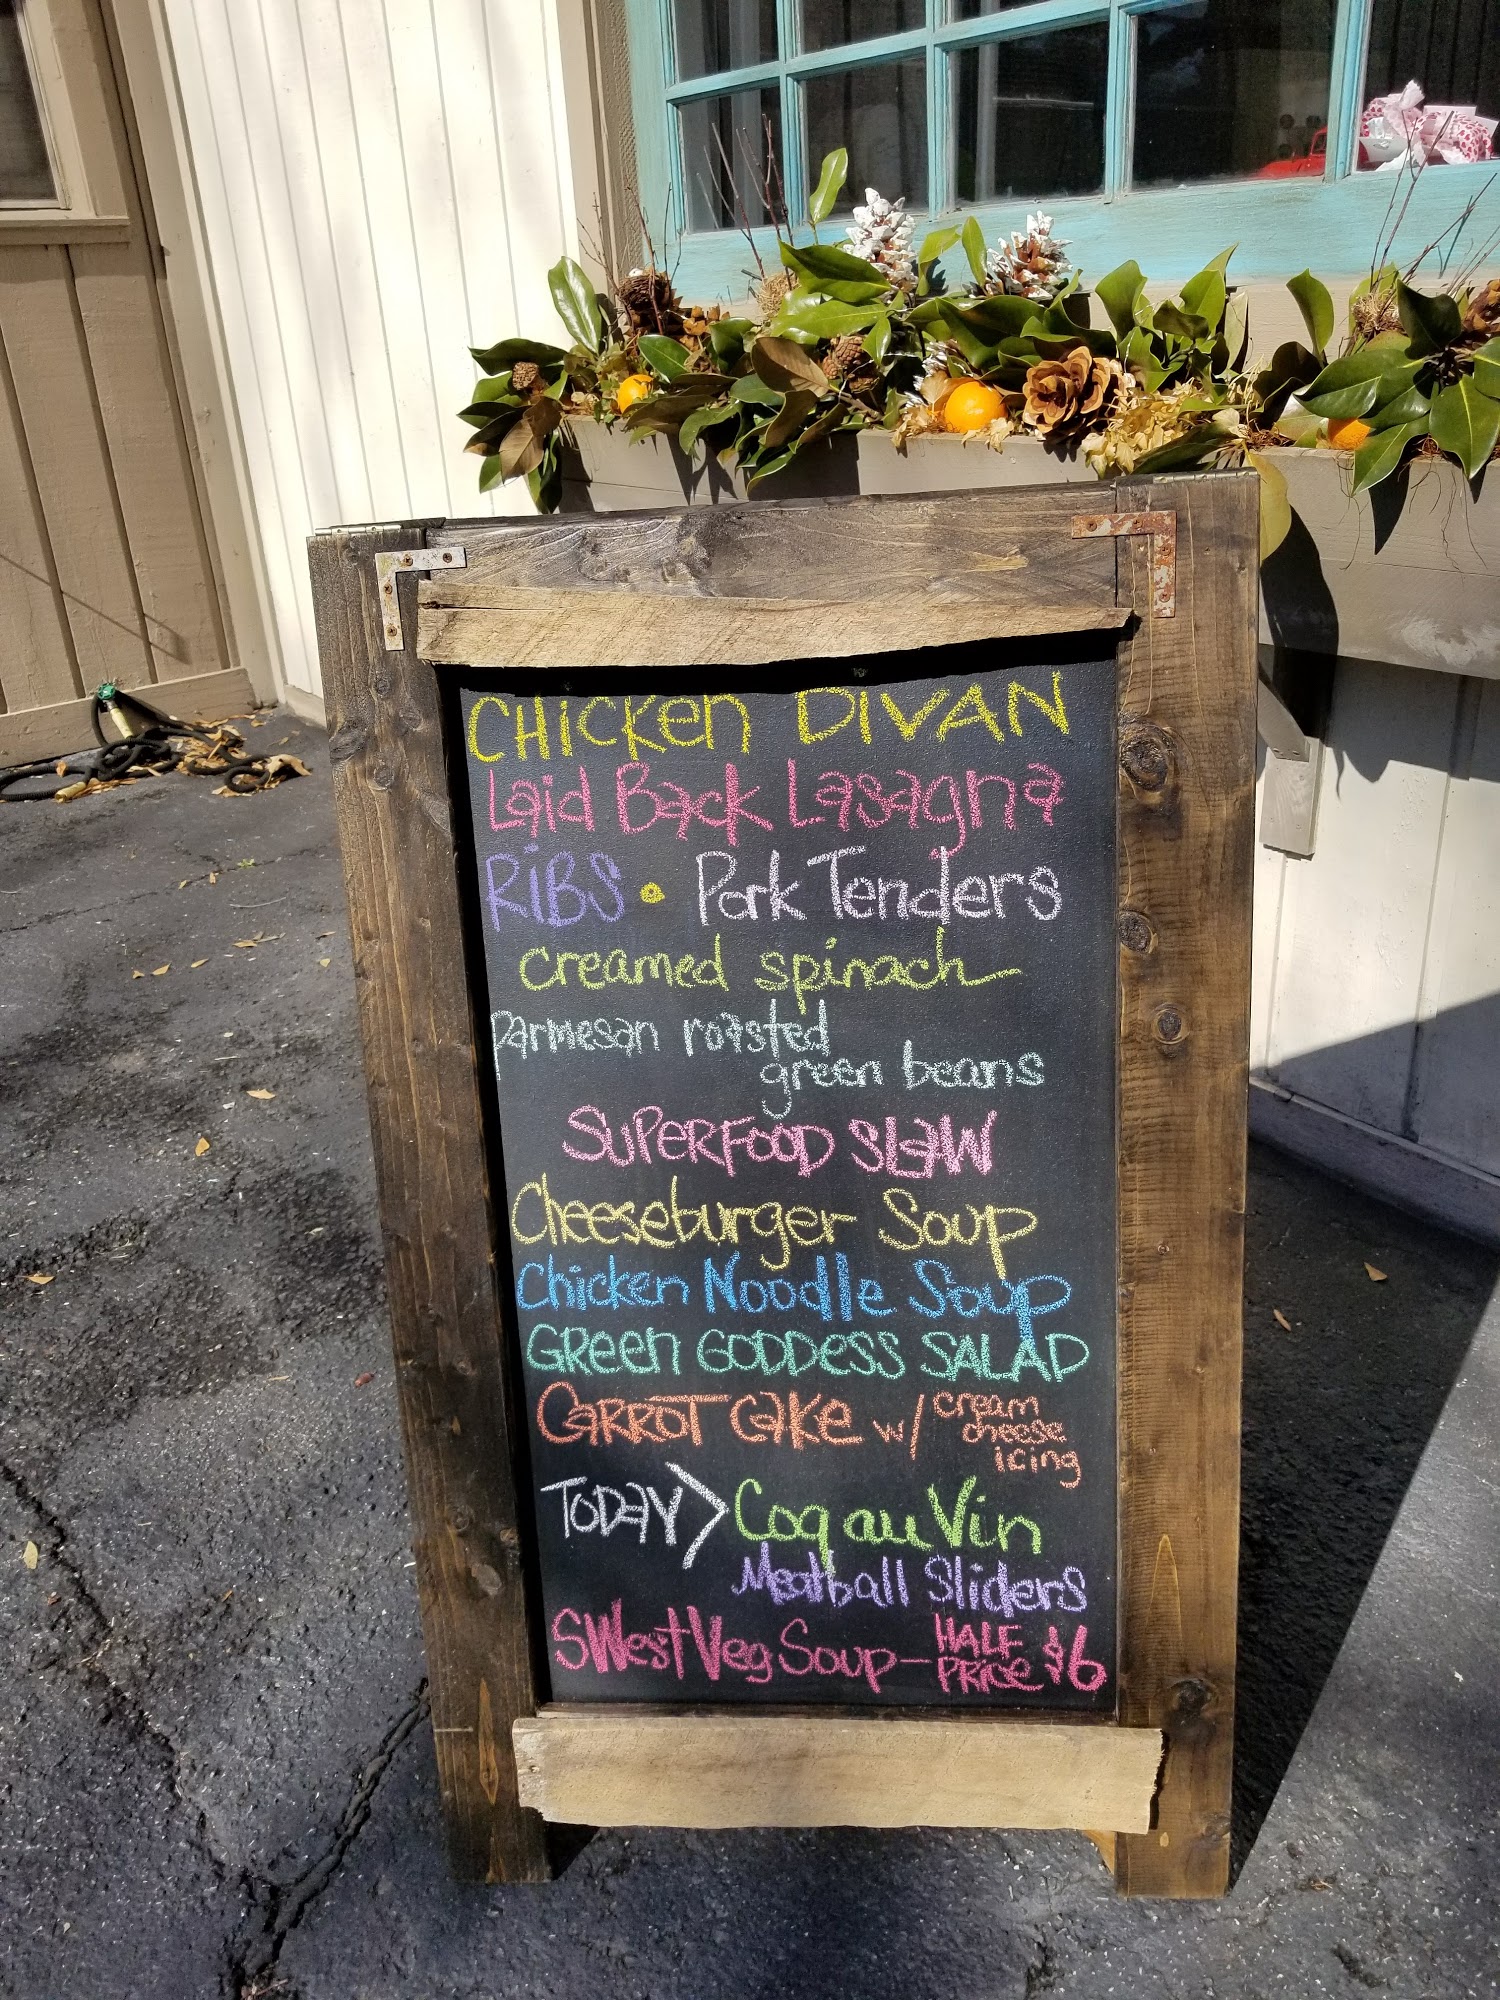 CHicKen DIVAN
Laid Back Lasagna
RiBS • Pork Tenders
creamed spinach
parmesan roasted
green beans
SUPERFOOD SLAW
Cheeseburger Soup
Chicken Noodle Soup
GReen GODDeSS SALAD
CARROT CAKe w/ cream
cheese
icing
TODAY > Coq au Vin
Meatball Sliders
SWest Veg Soup - HALF
PRice $6